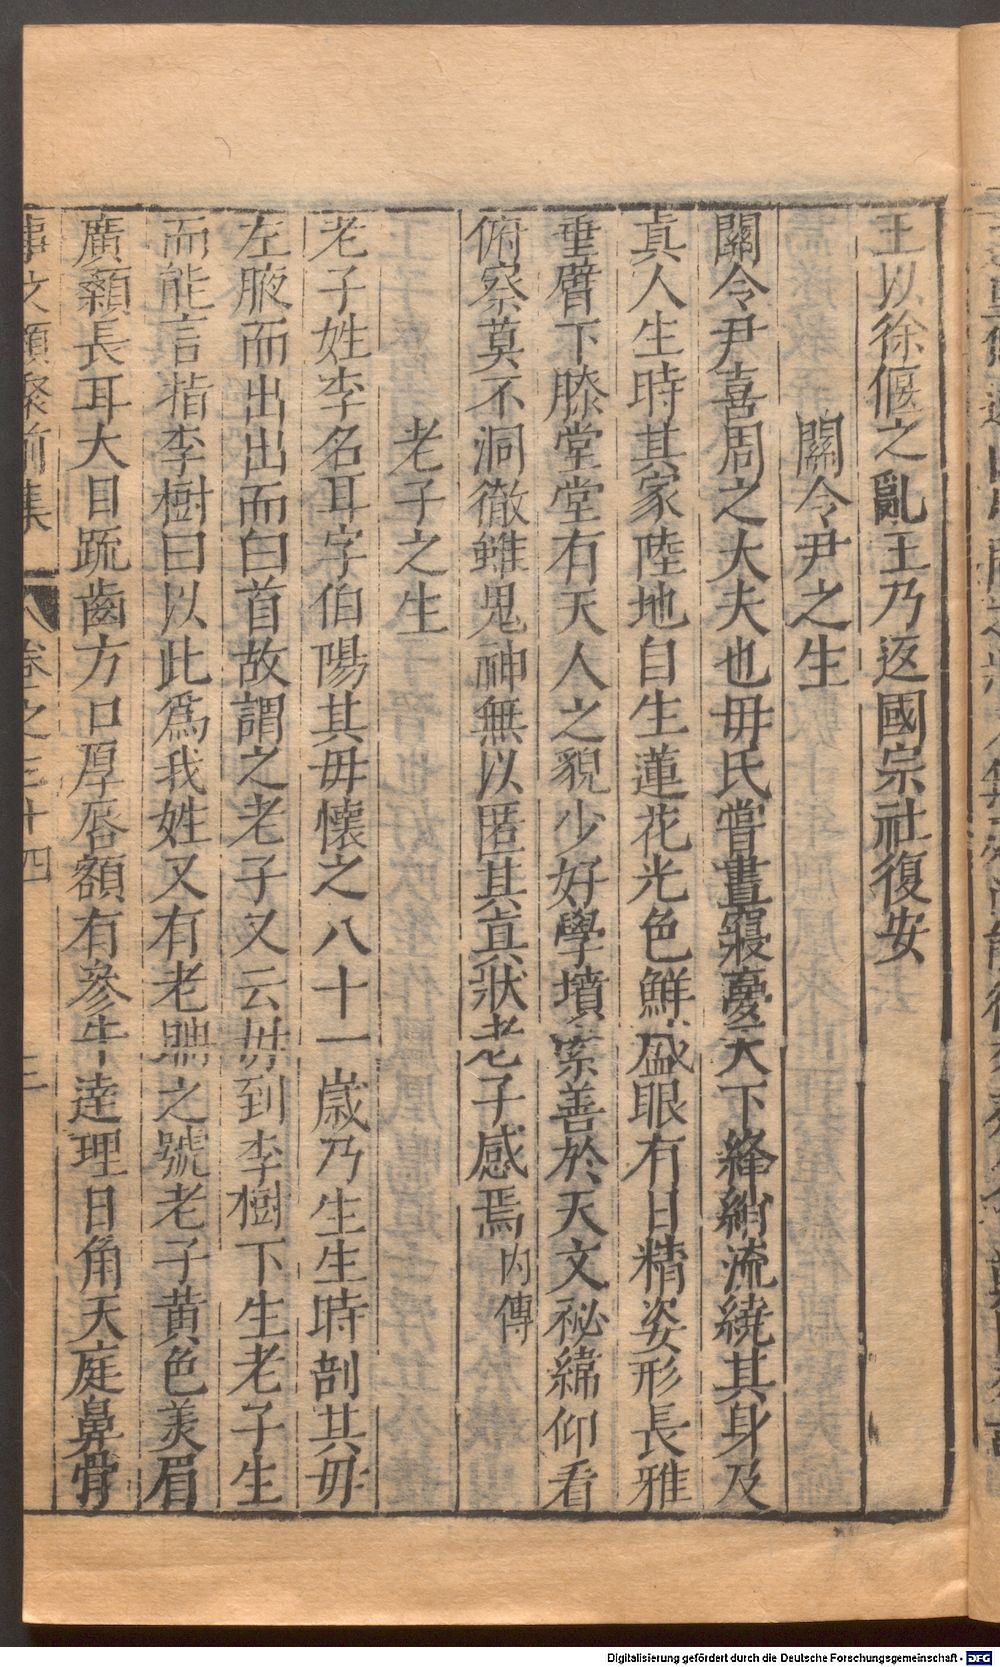 王以徐偃之亂王乃返國宗社復安
關令尹之生
關令尹喜周之大夫也毋氏嘗晝寢夢天下絳綃流繞其身及
真人生時其家陸地自生蓮花光色鮮盛眼有日精姿形長雅
垂臂下膝堂堂有天人之貌少好學墳索善於天文祕緯仰看
俯察莫不洞徹雖鬼神無以匿其真狀老子感焉内傳
老子之生
老子姓李名耳字伯陽其毋懷之八十一歲乃生生時剖其毋
左腋而出出而白首故謂之老子又云毋到李樹下生老子生
而能言指李樹曰以此爲我姓又有老聃之號老子黄色美眉
廣顙長耳大目疏齒方口厚唇額有參牛達理日角天庭鼻骨
事文類聚前集 卷之三十四
Digitalisierung gefördert durch die Deutsche Forschungsgemeinschaft - DFG